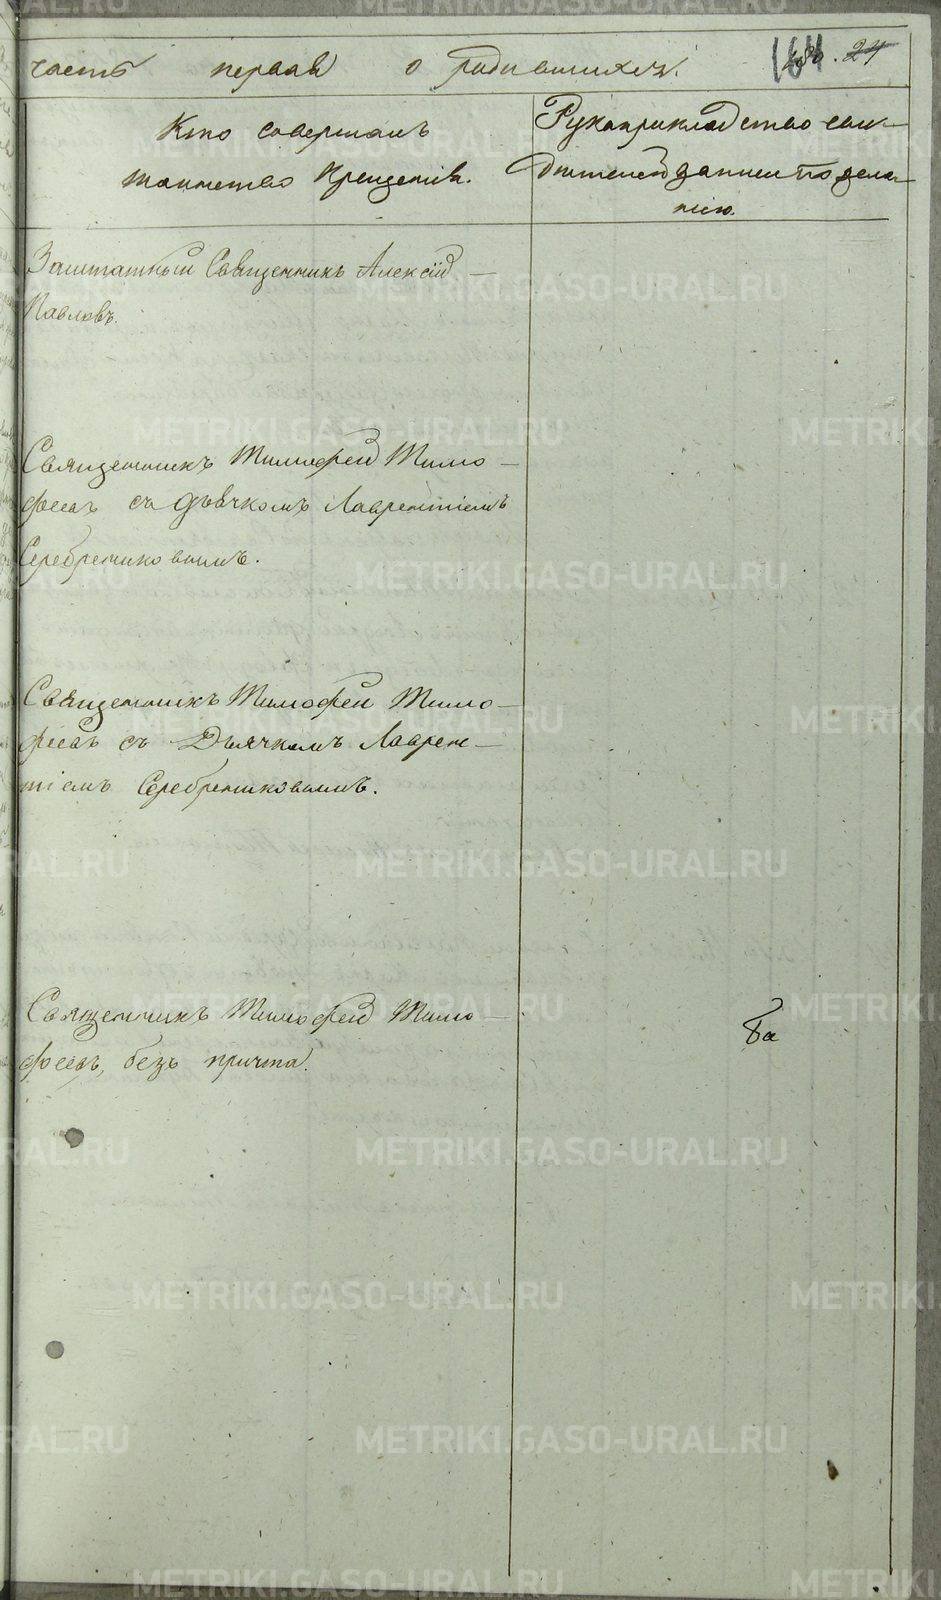 часть первая о родившихся.
164 24
Кто совершалъ
таинство Крещенія.
Рукоприкладство сви-
дѣтелей записи по жела-
нію.
Заштатный Священникъ Алексій
Павловъ.
Священникъ Тимофей Тимо-
феевъ съ дьячкомъ Лаврентіемъ
Серебрениковымъ.
Священникъ Тимофей Тимо-
феевъ съ Дьячкомъ Лаврен-
тіемъ Серебрениковымъ.
Священникъ Тимофей Тимо-
феевъ, безъ причта.
METRIKI.GASO-URAL.RU